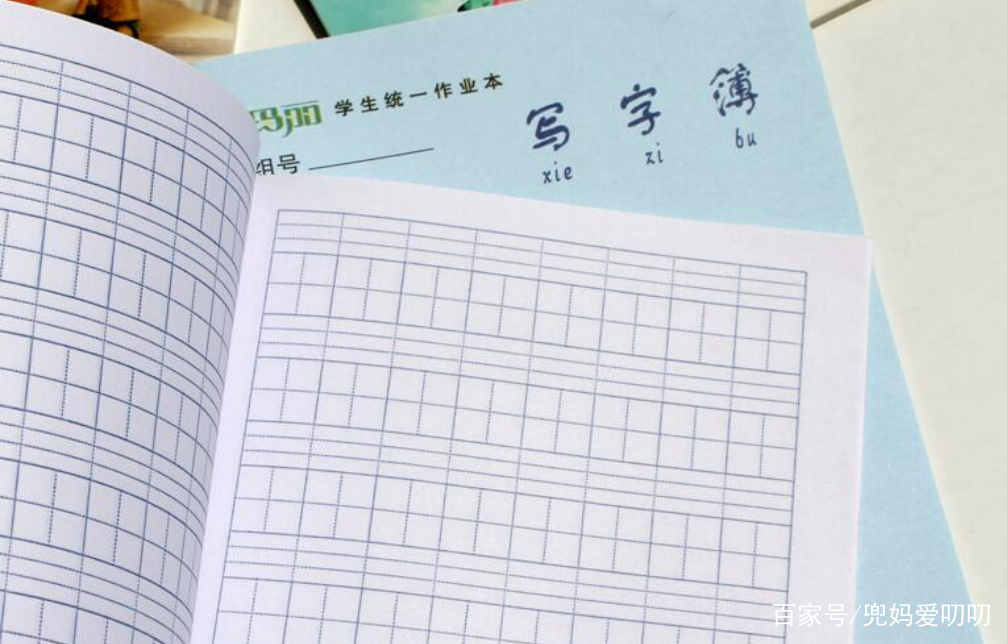 学生统一作业本
组号
写字簿
xie zi bu
百家号/兜妈爱叨叨